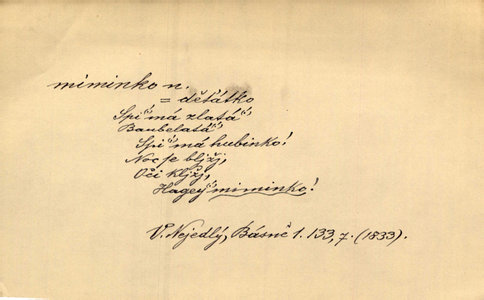 miminko n.
= děťátko
Spiž má zlatá
Baubelatá
Spiž má hubinko!
Noc je bljzj,
Oči kljžj,
Hagey miminko!
V. Nejedlý, Básně 1. 133, 7. (1833).